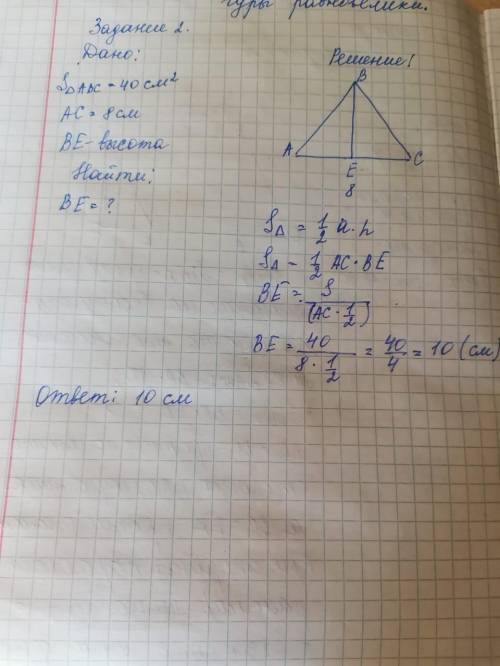 гуры равновелики.
Задание 2.
Дано:
S△ABC = 40 см²
AC = 8 см
BE - высота
Найти:
BE = ?
Решение!
B
A
C
E
8
S△ = 1/2 a · h
S△ - 1/2 AC · BE
BE = S/(AC · 1/2)
BE = 40/(8 · 1/2) = 40/4 = 10 (см)
Ответ: 10 см